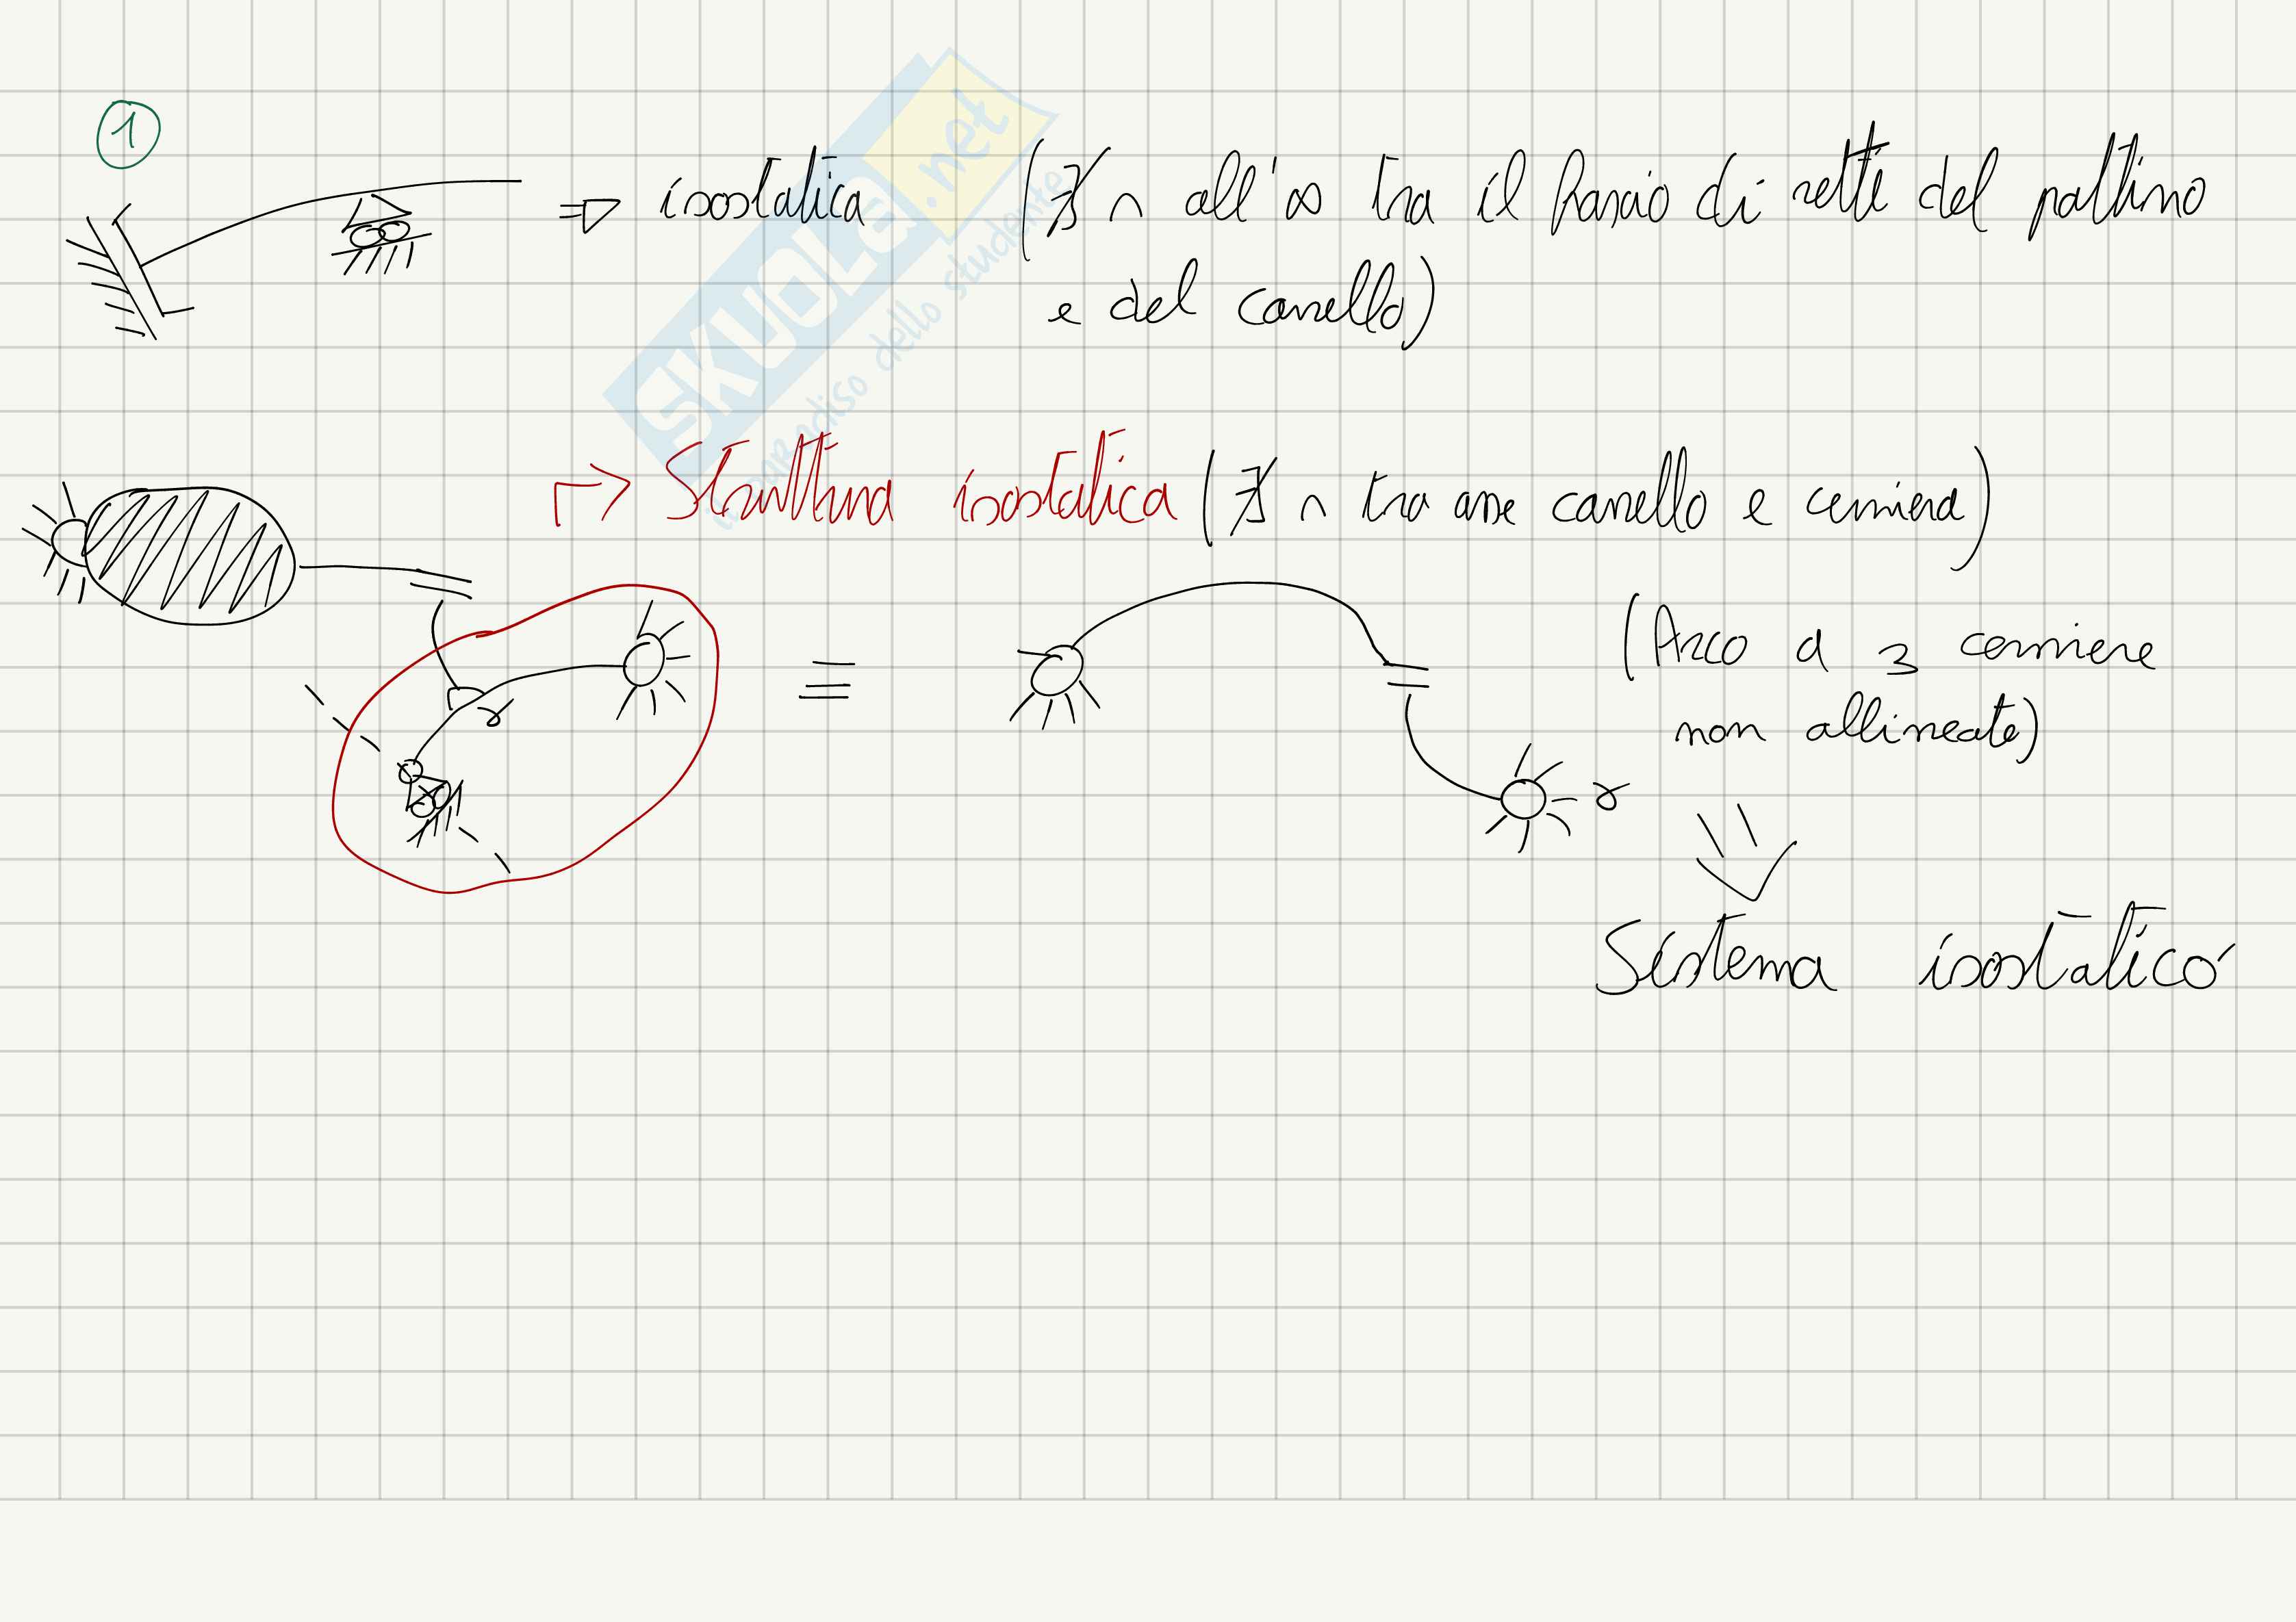 1
⇒ isostatica (∄ ∩ all'∞ tra il fascio di rette del pattino
e del carrello)
SKUOLA.net
il paradiso dello studente
Struttura isostatica (∄ ∩ tra asse carrello e cerniera)
≡
(Arco a 3 cerniere
non allineate)
γ
γ
Sistema isostatico